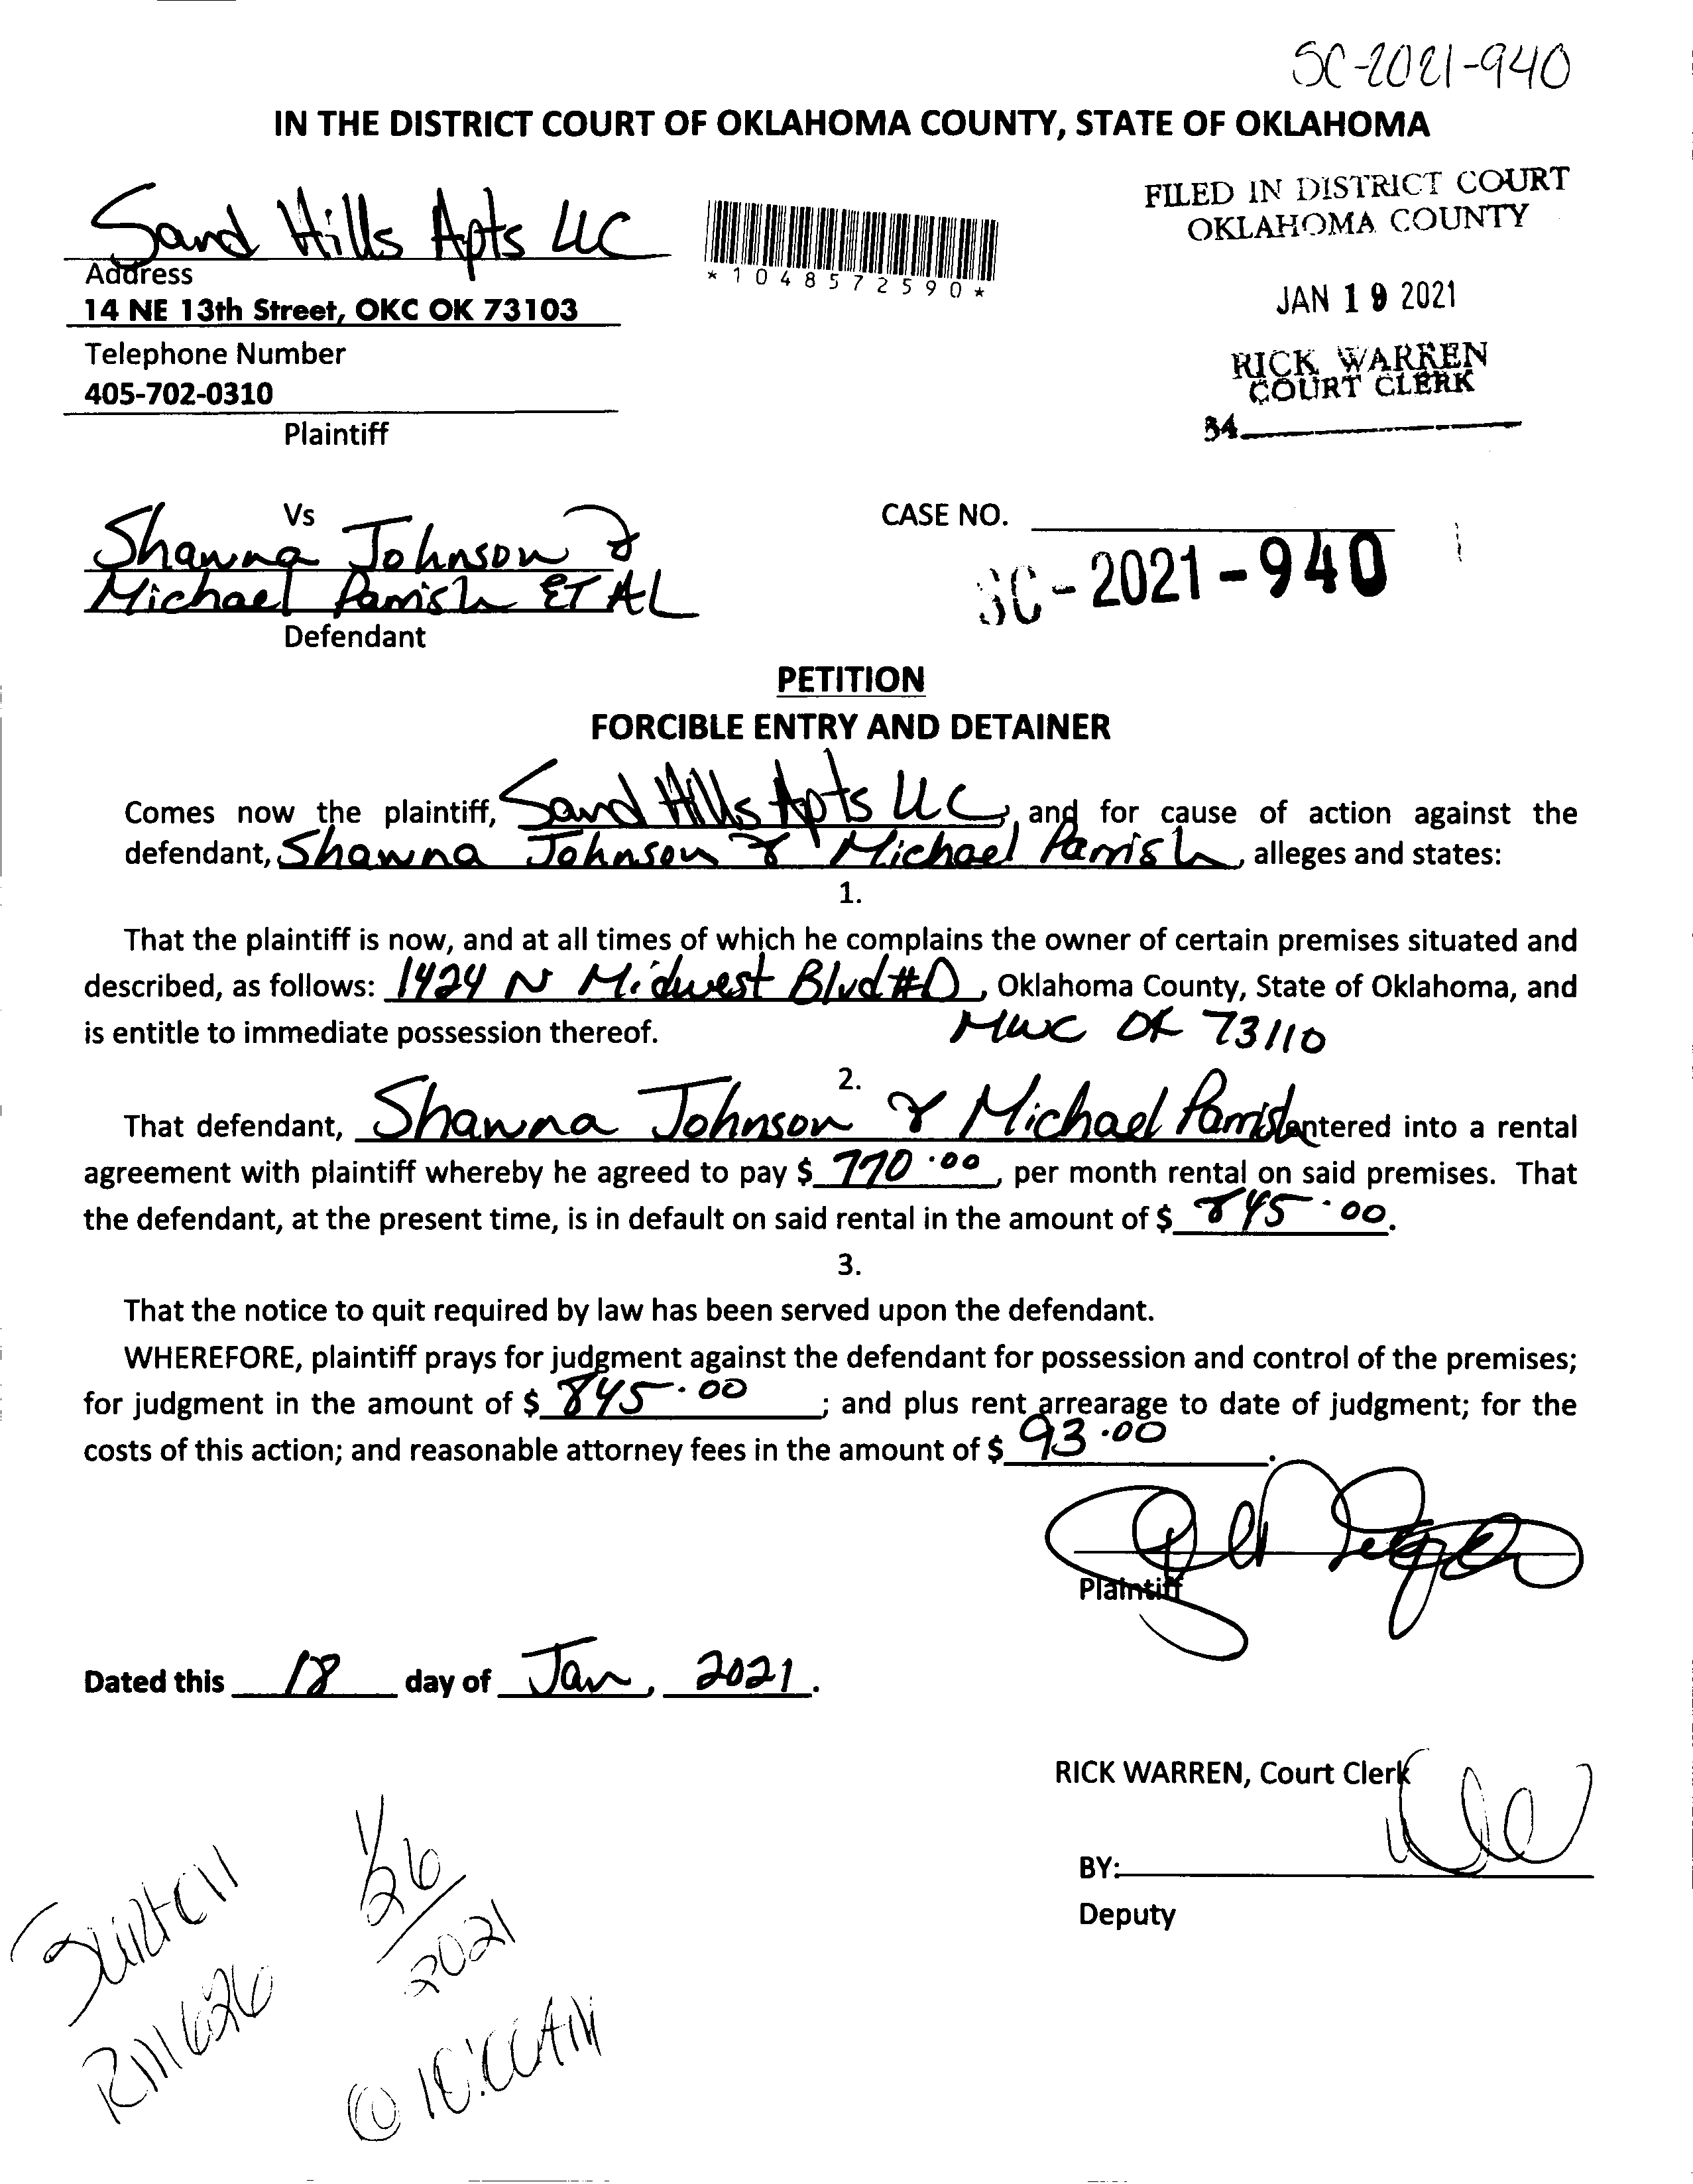 SC-2021-940
IN THE DISTRICT COURT OF OKLAHOMA COUNTY, STATE OF OKLAHOMA
Sand Hills Apts LLC
Address
14 NE 13th Street, OKC OK 73103
Telephone Number
405-702-0310
Plaintiff
*1048572590*
FILED IN DISTRICT COURT
OKLAHOMA COUNTY
JAN 19 2021
RICK WARREN
COURT CLERK
34
Vs
Shawna Johnson &
Michael Parrish ET AL
Defendant
CASE NO.
SC-2021-940
PETITION
FORCIBLE ENTRY AND DETAINER
Comes now the plaintiff, Sand Hills Apts LLC, and for cause of action against the
defendant, Shawna Johnson & Michael Parrish, alleges and states:
1.
That the plaintiff is now, and at all times of which he complains the owner of certain premises situated and
described, as follows: 1424 N Midwest Blvd #D, Oklahoma County, State of Oklahoma, and
is entitle to immediate possession thereof. MWC OK 73110
2.
That defendant, Shawna Johnson & Michael Parrish entered into a rental
agreement with plaintiff whereby he agreed to pay $ 770.00, per month rental on said premises. That
the defendant, at the present time, is in default on said rental in the amount of $ 845.00.
3.
That the notice to quit required by law has been served upon the defendant.
WHEREFORE, plaintiff prays for judgment against the defendant for possession and control of the premises;
for judgment in the amount of $ 845.00 ; and plus rent arrearage to date of judgment; for the
costs of this action; and reasonable attorney fees in the amount of $ 93.00.
Plaintiff
Dated this 18 day of Jan, 2021.
RICK WARREN, Court Clerk
BY:
Deputy
RM 626
1/26/2021
@ 10:00AM